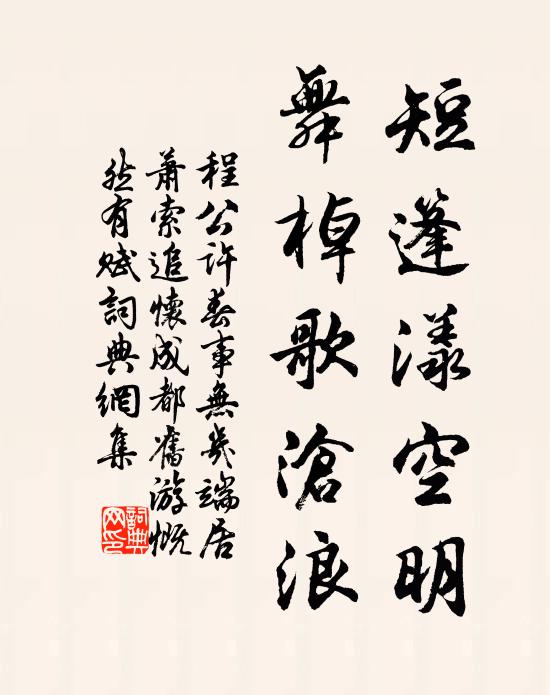 短篷漾空明
舞棹歌滄浪
程公許春事無幾端居
蕭索追懷成都舊游慨
然有賦詞典網集
詞典
网印